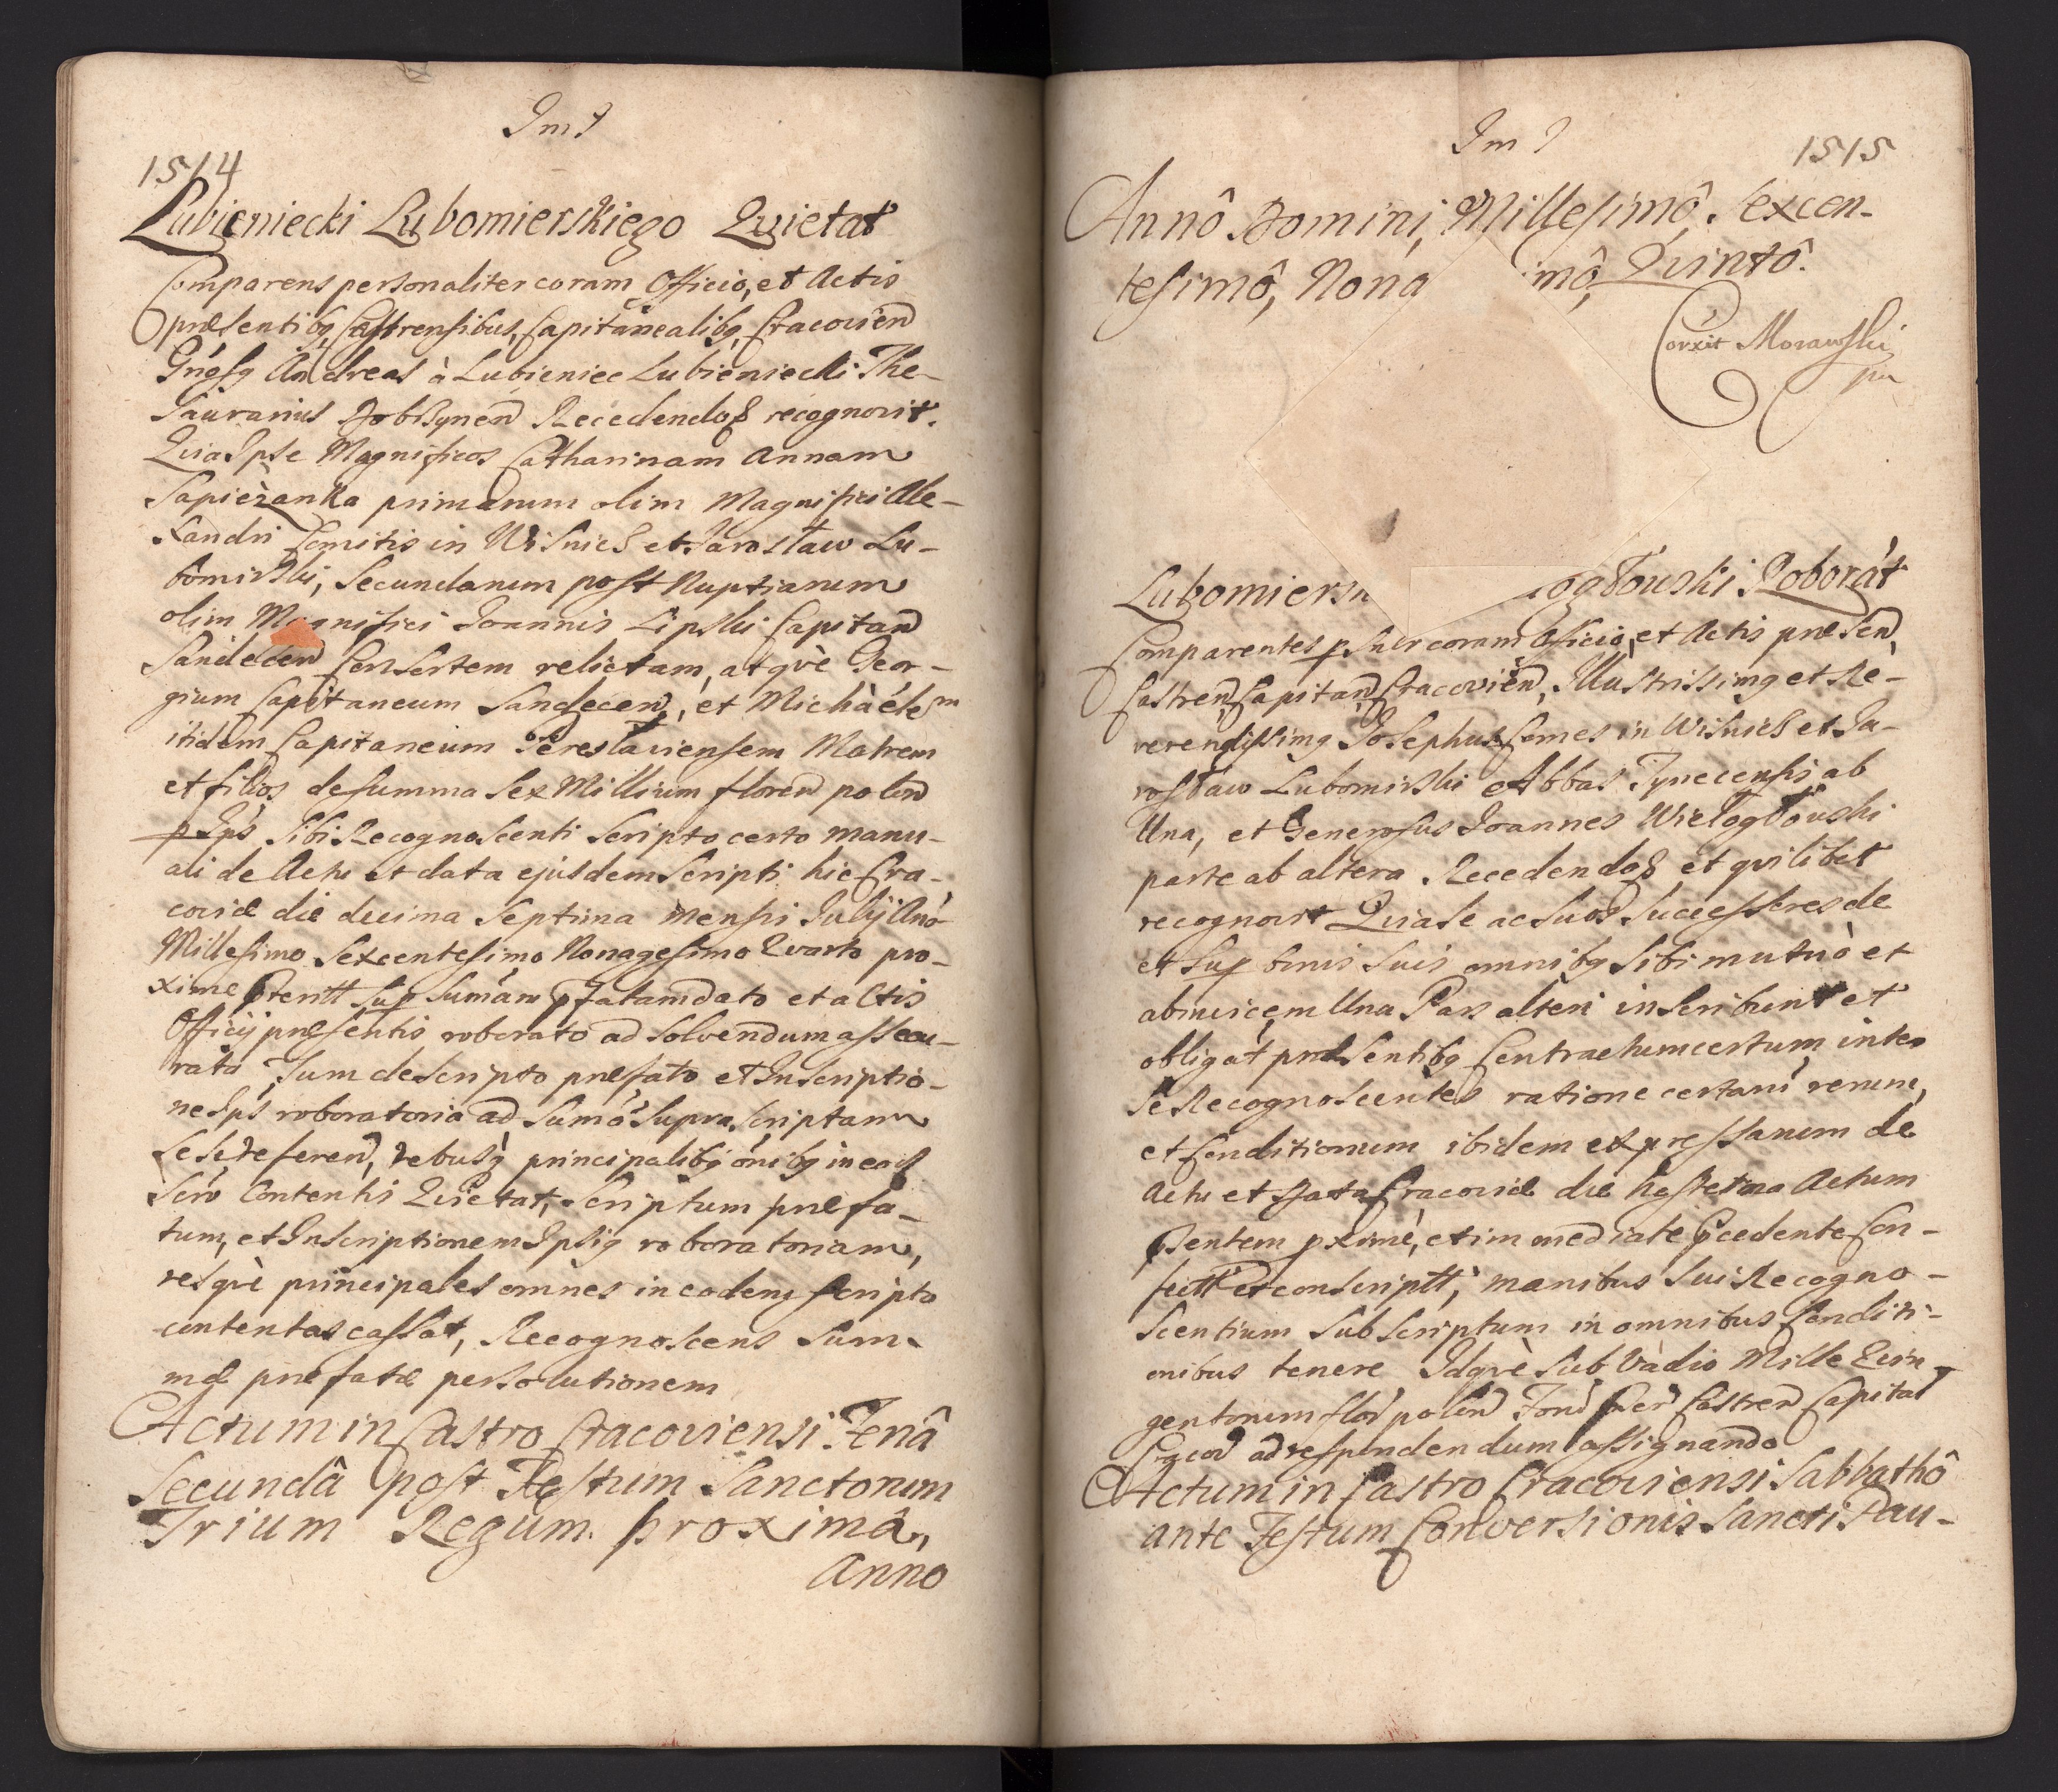 Im?
1514
Lubieniecki Lubomierskiego Qvietat
Comparens personaliter coram Officio, et Actis
præsentibq Castrensibus, Capitanealibq, Cracovien
Gnosq Andreas à Lubieniec Lubieniecki The-
saurarius Dobrzynen Recedendo recognovit.
Quia Ipse Magnificos Catharinam Annam
Sapieżanka primarum olim Magnifici Ale-
xandri Comitis in Wisnicz et Jarosław Lu-
bomirski, Secundarum post Nuptiarum
olim Magnifici Joannis Lipski Capitan
Sandecen Consortem relictam, atqvè Geor-
gium Capitaneum Sandecen, et Michàélem
itidem Capitaneum Peresłaviensem Matrem
et filios de summa Sex Millium floren polon
p Ips Sibi Recognoscenti Scripto certo manu-
ali de Actu et data ejusdem Scripti hic Cra-
coviæ die decima Septima mensis Julij Anô
Millesimo Sexcentesimo Nonagesimo Quarto pro-
xime sup Sumám pfatam dato et actis
Officij præsentis roborato ad solvendum assecu-
rata Tum de Scripto præfato et Inscriptio-
ne Ips roboratoria ad Sumá Supra Scriptam
Sese referen, rebusq principalibq ónibq in eod
Scrò Contentis Qvietat, Scriptum præfa-
tum, et Inscriptionem Ipsiq roboratoriam,
resqvè principales omnes in eodem Scripto
contentas cassat, Recognoscens Sum-
mæ præfatæ persolutionem
Actum in Castro Cracoviensi Feriâ
Secundâ post Festum Sanctorum
Trium Regum proximâ,
Anno
Im?
1515
Annô Domini, Millesimô, Sexcen-
tesimô, Nona mô, Qvintô.
Corxit Morawski
pm
Lubomiers ogłowski Roborát
Comparentes psnlr coram Officio, et Actis præsen,
Castren Capitan Cracovien, Illustrissimq et Re-
verendissimq Josephus Comes in Wisnicz et Ja-
rosław Lubomirski Abbas Tynecensis ab
Una, et Generosus Joannes Wielogłowski
parte ab altera Recedendo et qvilibet
recognovit Quia Se ac Suos Successores de
et sup bonis Suis omnibq Sibi mutuò et
abinvicem Una Pars alteri inscribunt et
obligát præsentibq Contractum certum inter
Se Recognoscentes ratione certarú rerum,
et Conditionum ibidem expressarum de
Actu et Data Cracoviæ die hesterna Actum
psentem pximè, et immediatè pcedente Con-
fectt et conscriptt, manibus Sui Recogno-
scentium Subscriptum in omnibus Conditi-
onibus tenere Idqvè Sub Vadio Mille Quin-
gentorum flor polon Foru Castren Capitan
Cracov ad respondendum assignando
Actum in Castro Cracoviensi Sabbathô
ante Festum Conversionis Sancti Pau-